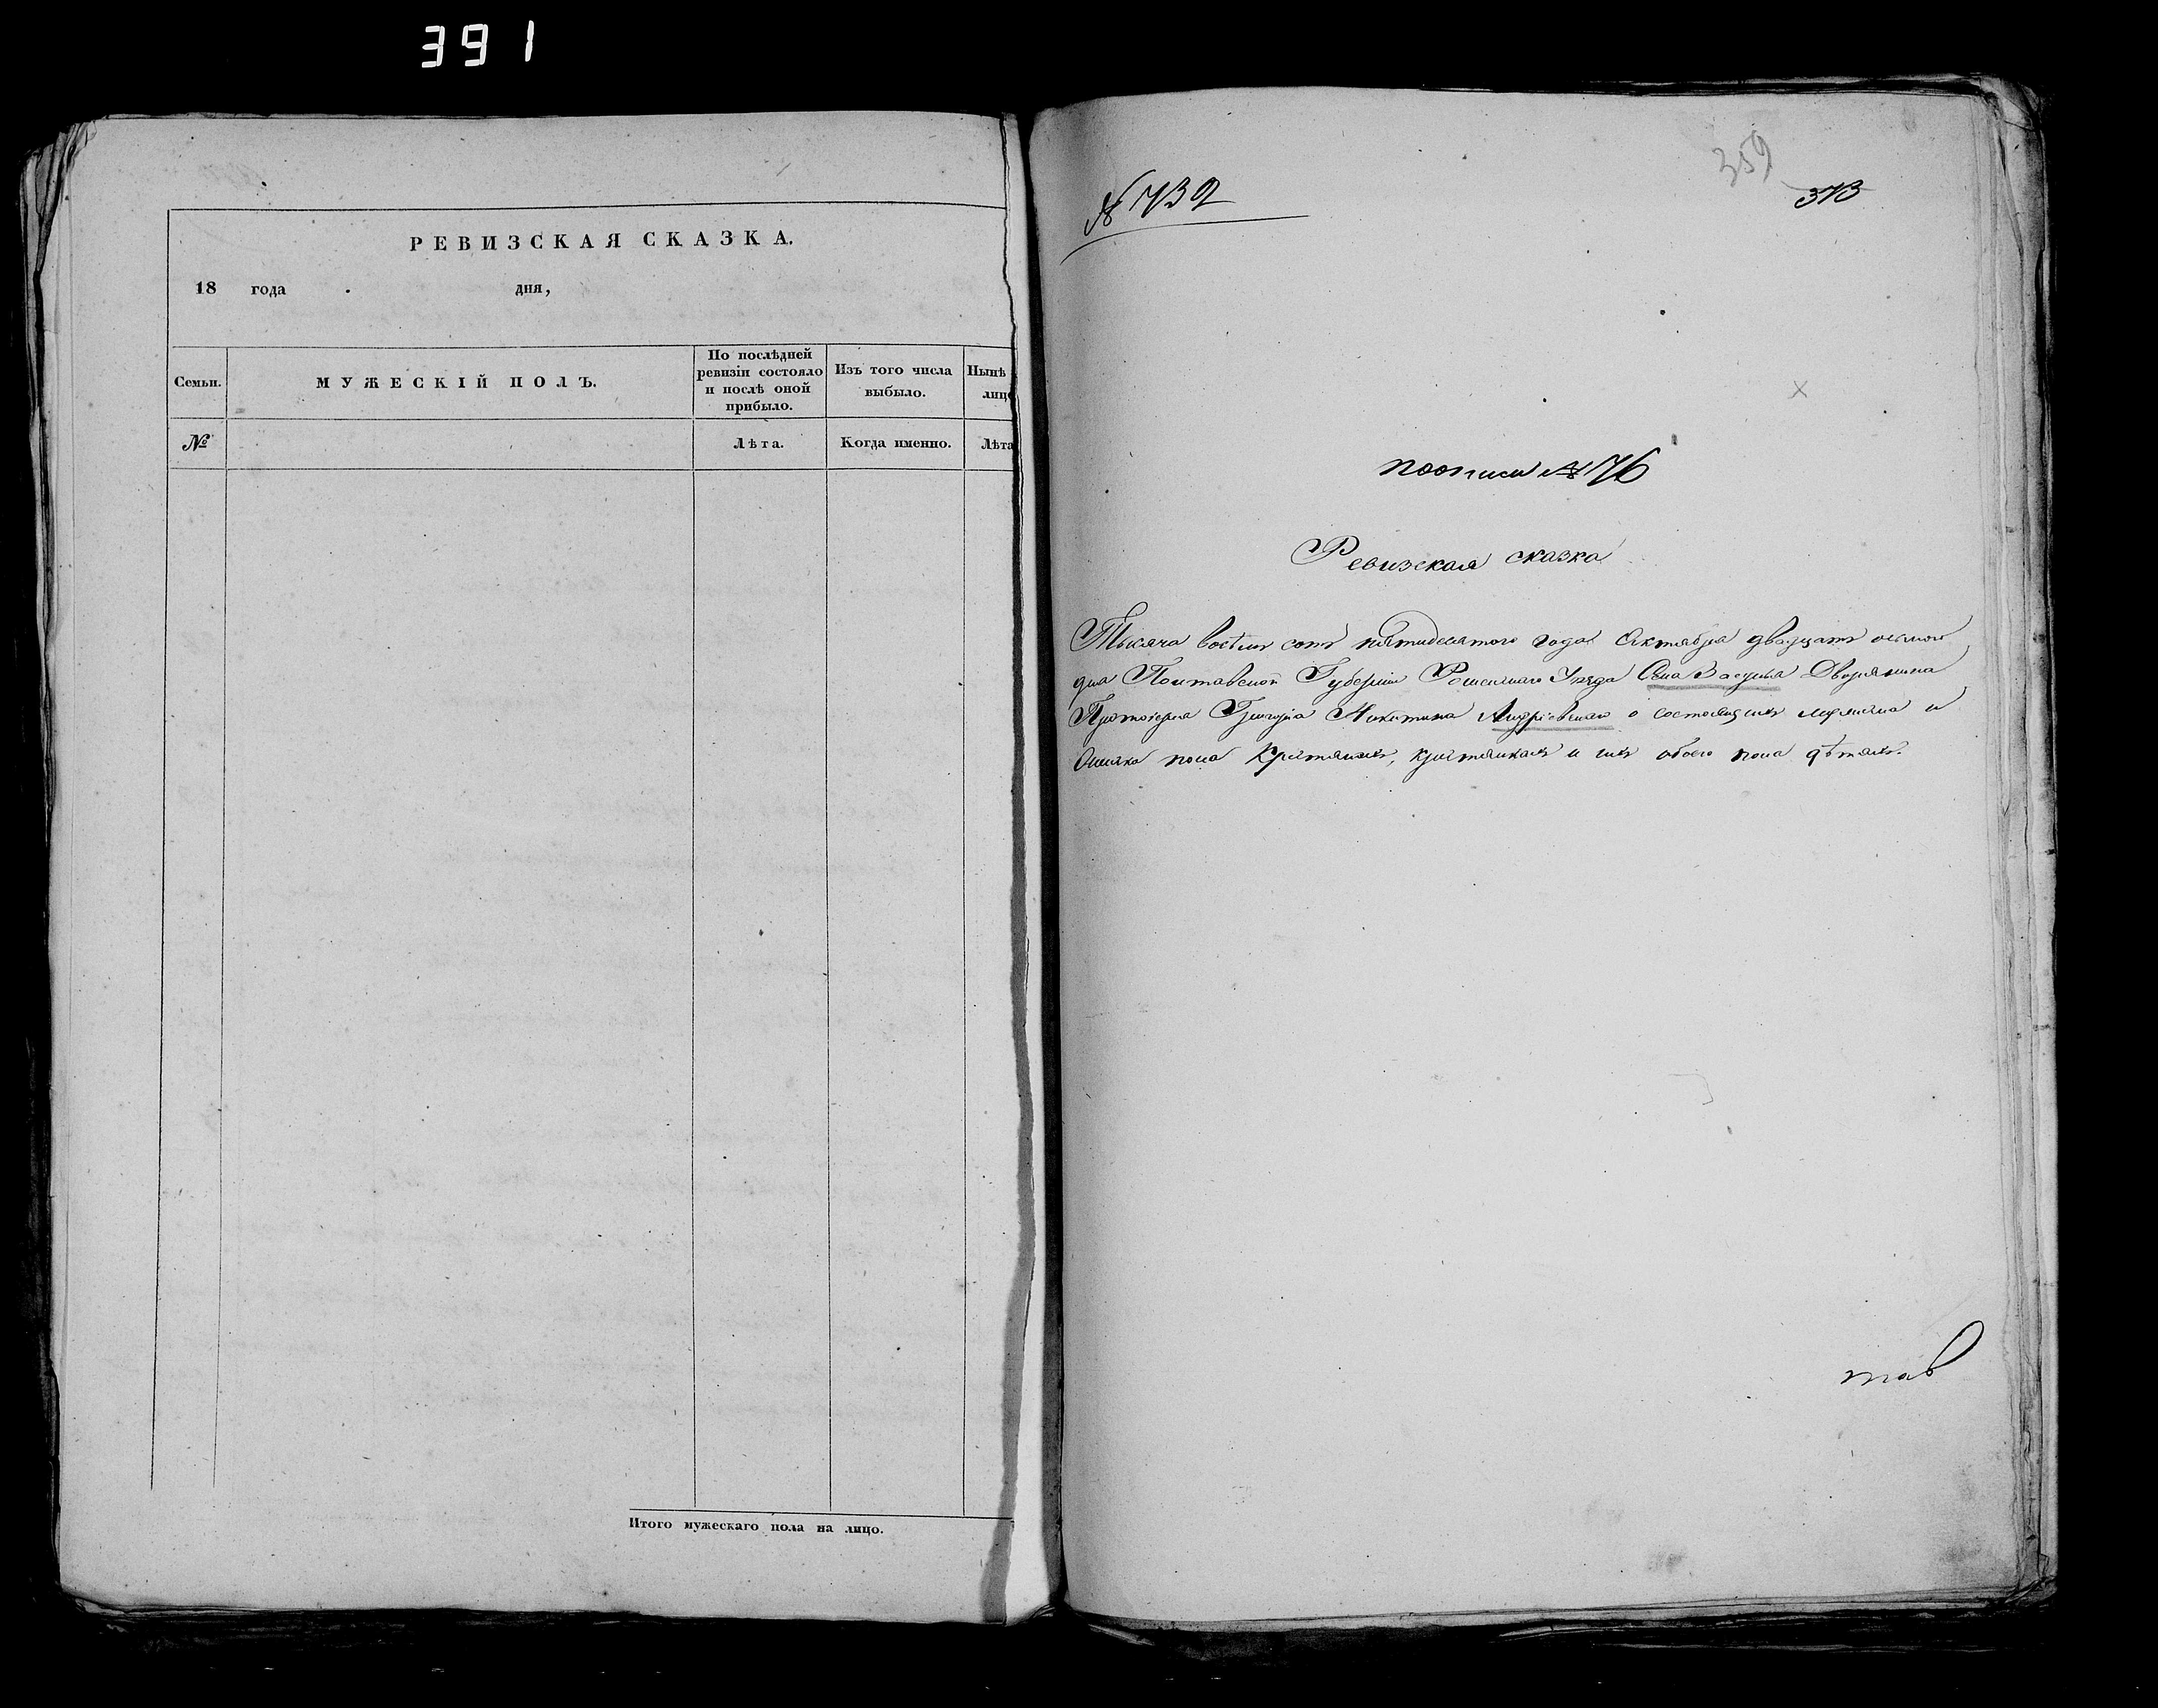 391
РЕВИЗСКАЯ СКАЗКА.
18 года . дня,
Семьи.
МУЖЕСКІЙ ПОЛЪ.
По послѣдней
ревизіи состояло
и послѣ оной
прибыло.
Изъ того числа
выбыло.
Нынѣ
лицо
№
Лѣта.
Когда именно.
Лѣта
Итого мужескаго пола на лицо.
№ 732
359
373
по описи № 76
Ревизская сказка
Тысяча восѣмъ сотъ пятидесятого года Октября двадцать осьмого
дня Полтавской Губерніи Уѣзда Села Дворянина
Протоіерея Григорія Никитина Андріевскаго о состоящихъ мужеска и
женска пола крестьянахъ, крестьянкахъ и ихъ обоего пола дѣтяхъ.